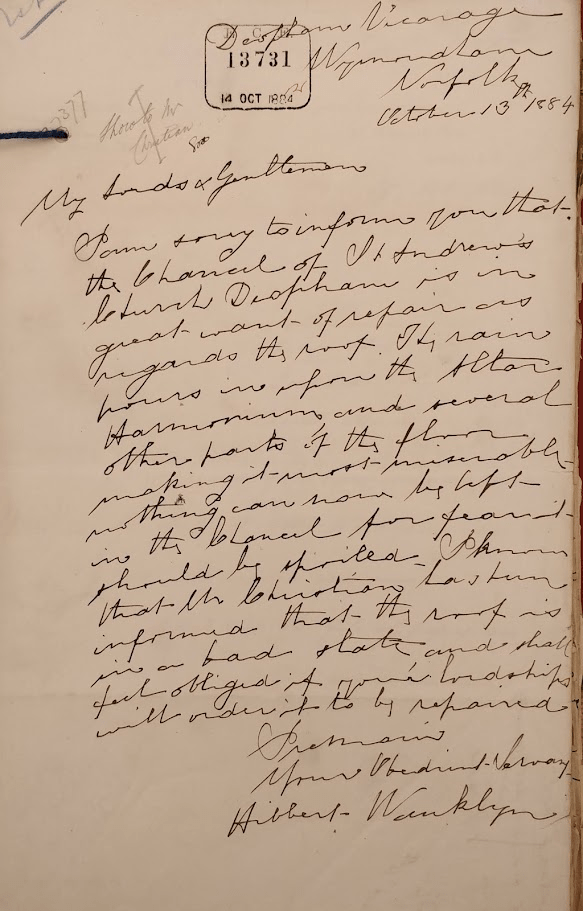 Deopham Vicarage
E C E
13731
14 OCT 1884
Wymondham
Norfolk
October 13th 1884
Show to Mr
Christian
My Lords & Gentlemen
I am sorry to inform you that
the Chancel of St Andrew's
Church Deopham is in
great want of repair as
regards the roof. The rain
pours in upon the Altar
Harmonium and several
other parts of the floor
making it most miserable
nothing can now be left
in the Chancel for fear it
should be spoiled. I know
that Mr Christian has been
informed that the roof is
in a bad state and shall
feel obliged if your lordships
will order it to be repaired
I remain
Your Obedient Servant
Hibbert Wanklyn